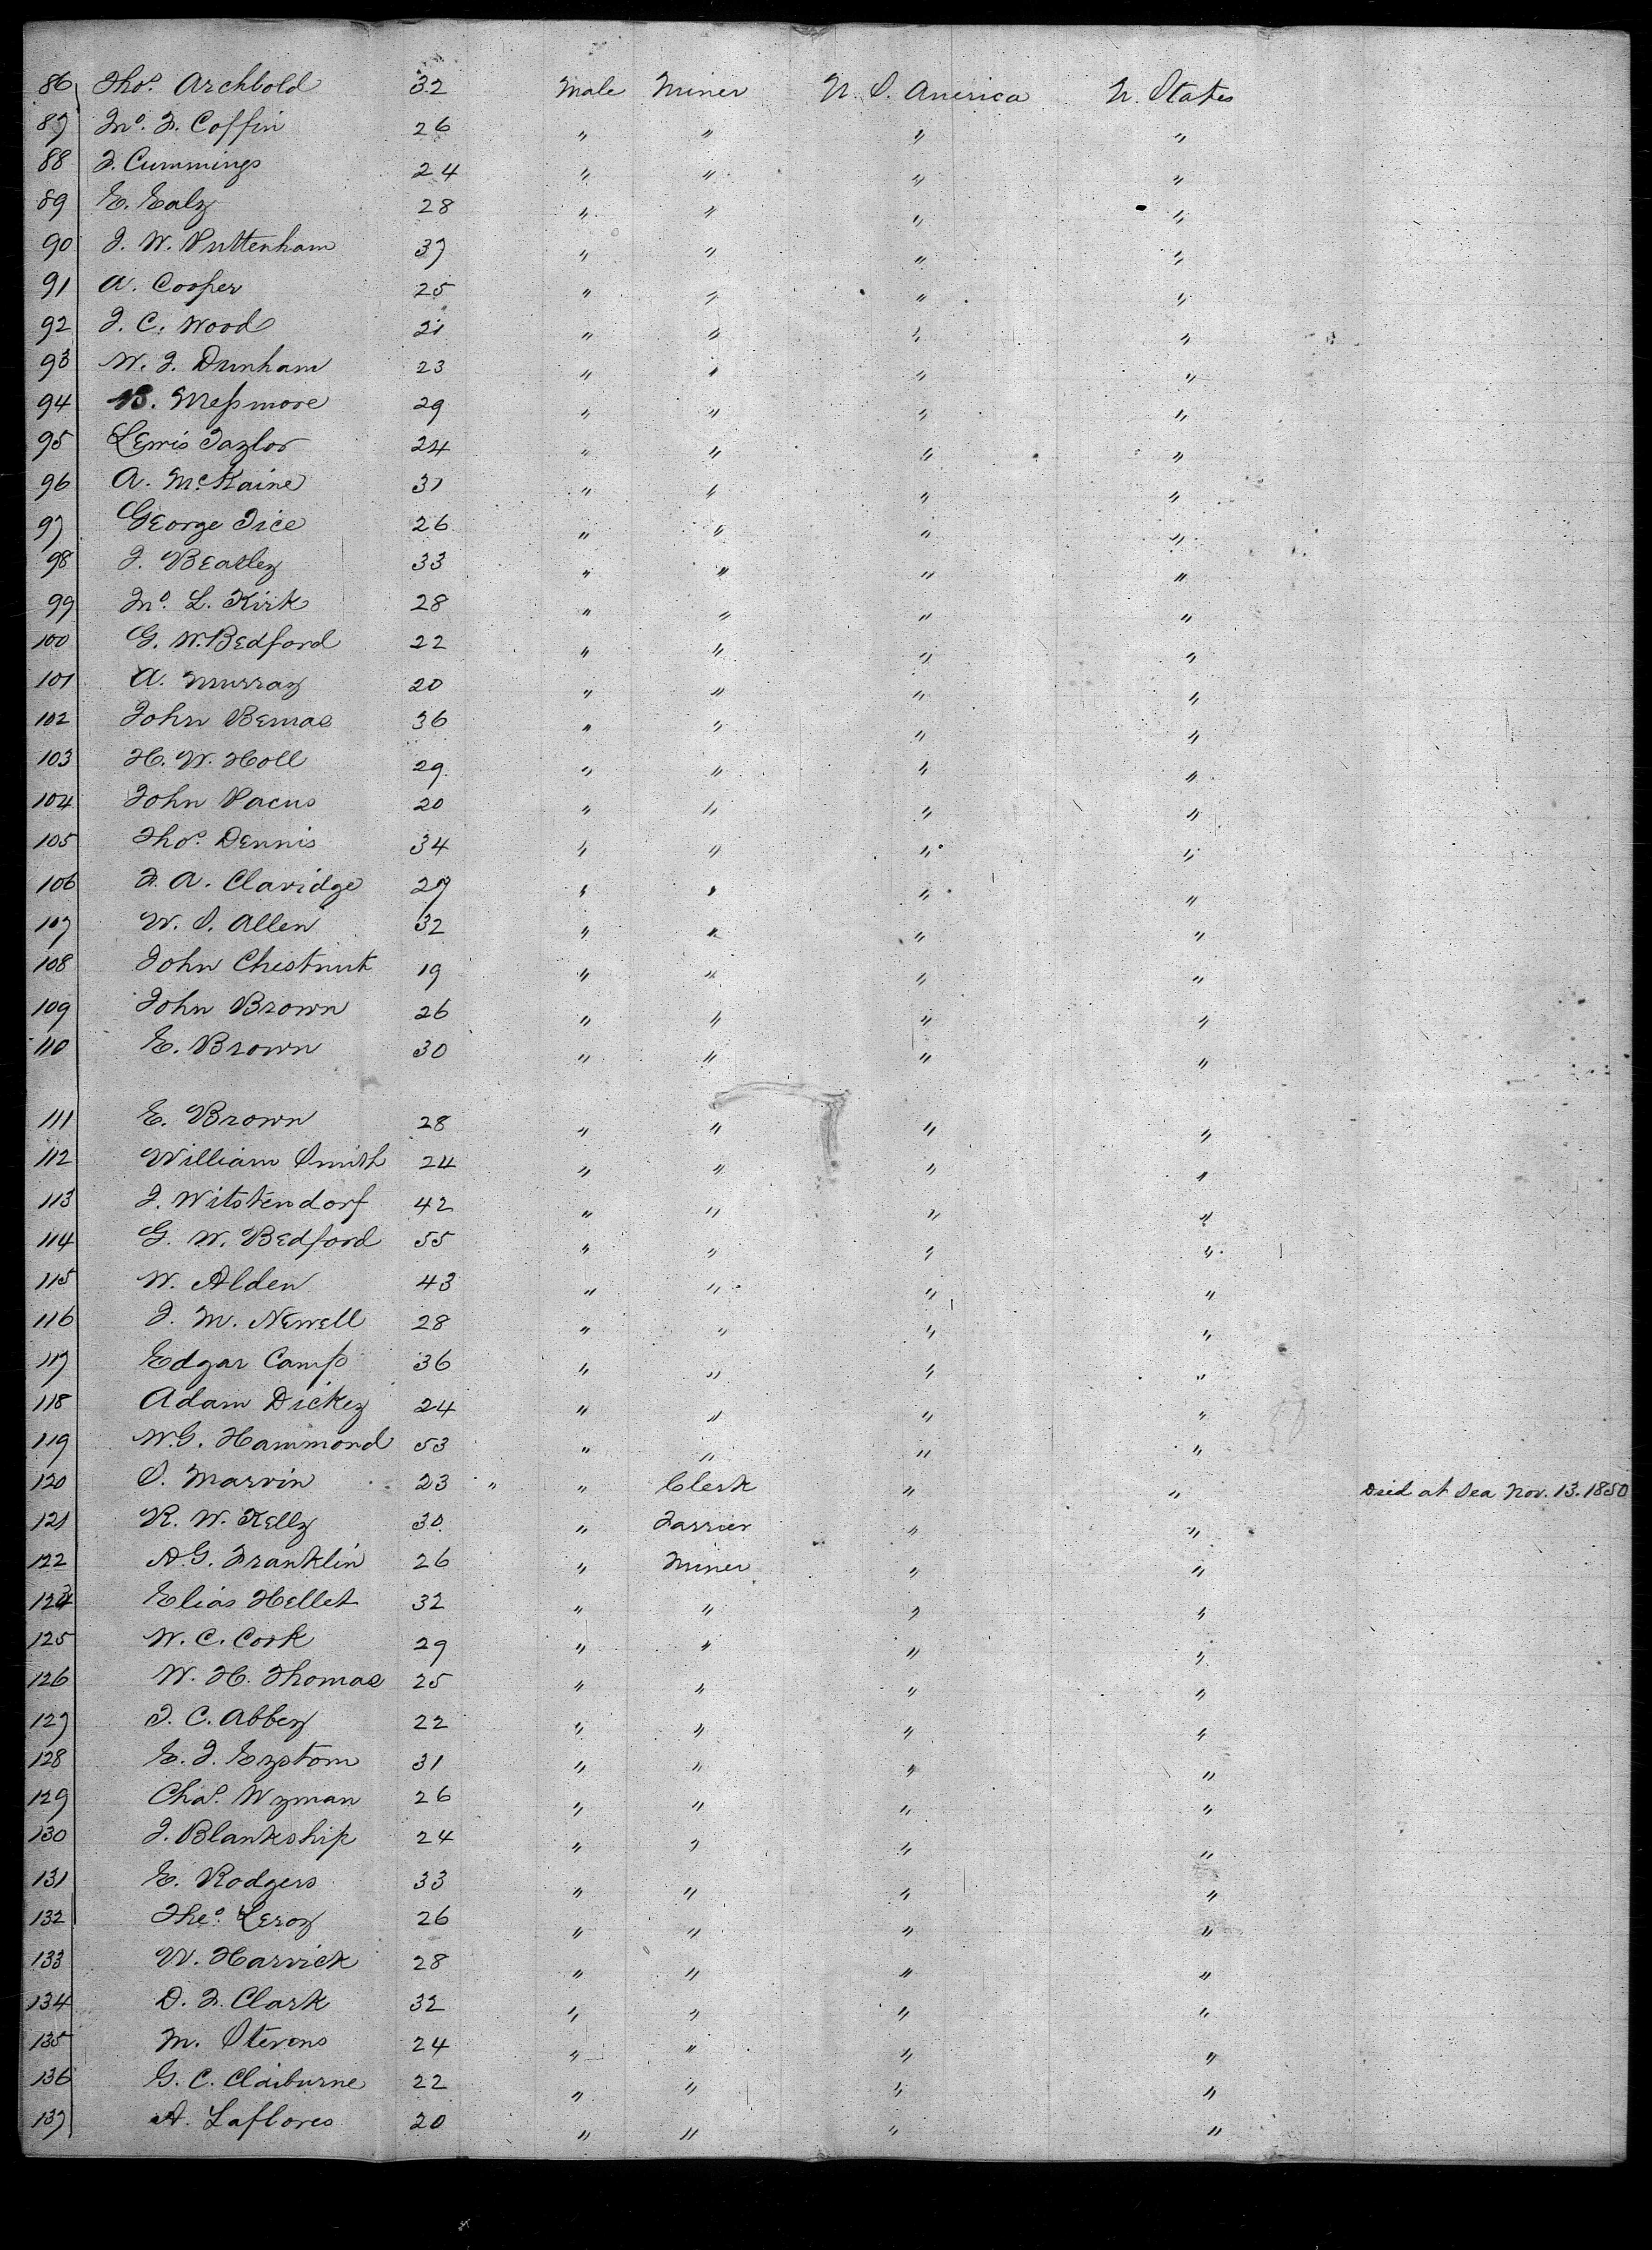 86 Thos. Archbold 32 Male Miner U. S. America U. States
87 Jno. F. Coffin 26 " " " "
88 F. Cummings 24 " " " "
89 E. Ealy 28 " " " "
90 J. W. Puttenham 37 " " " "
91 A. Cooper 25 " " " "
92 J. C. Wood 21 " " " "
93 W. J. Dunham 23 " " " "
94 B. Messmore 29 " " " "
95 Lewis Taylor 24 " " " "
96 A. McKaine 31 " " " "
97 George Tice 26 " " " "
98 J. Beatley 33 " " " "
99 Jno. L. Kirk 28 " " " "
100 G. W. Bedford 22 " " " "
101 A. Murray 20 " " " "
102 John Bemas 36 " " " "
103 H. W. Holl 29 " " " "
104 John Pacus 20 " " " "
105 Thos. Dennis 34 " " " "
106 F. A. Claridge 27 " " " "
107 W. S. Allen 32 " " " "
108 John Chestnut 19 " " " "
109 John Brown 26 " " " "
110 E. Brown 30 " " " "
111 E. Brown 28 " " " "
112 William Smith 24 " " " "
113 J. Witstendorf 42 " " " "
114 G. W. Bedford 55 " " " "
115 W. Alden 43 " " " "
116 J. M. Newell 28 " " " "
117 Edgar Camp 36 " " " "
118 Adam Dickey 24 " " " "
119 W. G. Hammond 53 " " " "
120 S. Marvin 23 " " Clerk " " Died at Sea Nov. 13. 1850
121 R. W. Kelly 30 " Farrier " "
122 A. G. Franklin 26 " Miner " "
124 Elias Hellet 32 " " " "
125 W. C. Cook 29 " " " "
126 W. H. Thomas 25 " " " "
127 J. C. Abbey 22 " " " "
128 E. J. Eystom 31 " " " "
129 Chas. Wyman 26 " " " "
130 J. Blankship 24 " " " "
131 E. Rodgers 33 " " " "
132 Theo. Leroy 26 " " " "
133 W. Harvick 28 " " " "
134 D. F. Clark 32 " " " "
135 M. Stevens 24 " " " "
136 G. C. Claiburne 22 " " " "
137 A. Laflores 20 " " " "